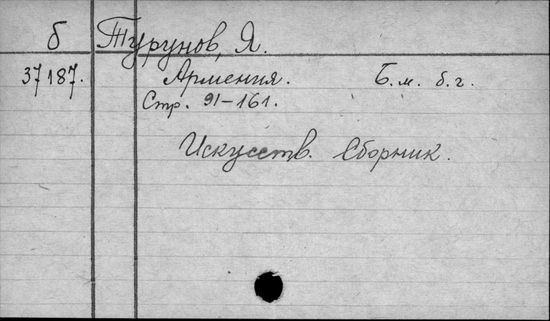 б Турунов, Я.
37187. Армения. Б.м. б.г.
Стр. 91-161.
Искусств. Сборник.